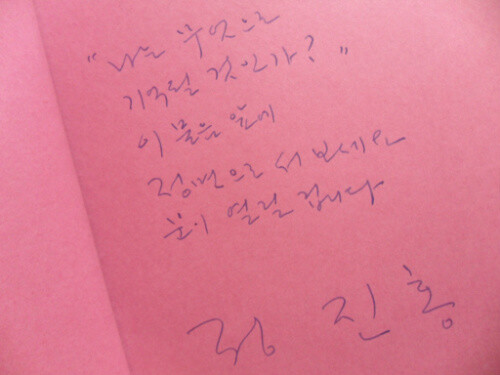 "나는 무엇으로
기억될 것인가?"
이 물음 앞에
정면으로 서 보세요
문이 열릴 겁니다
정진홍